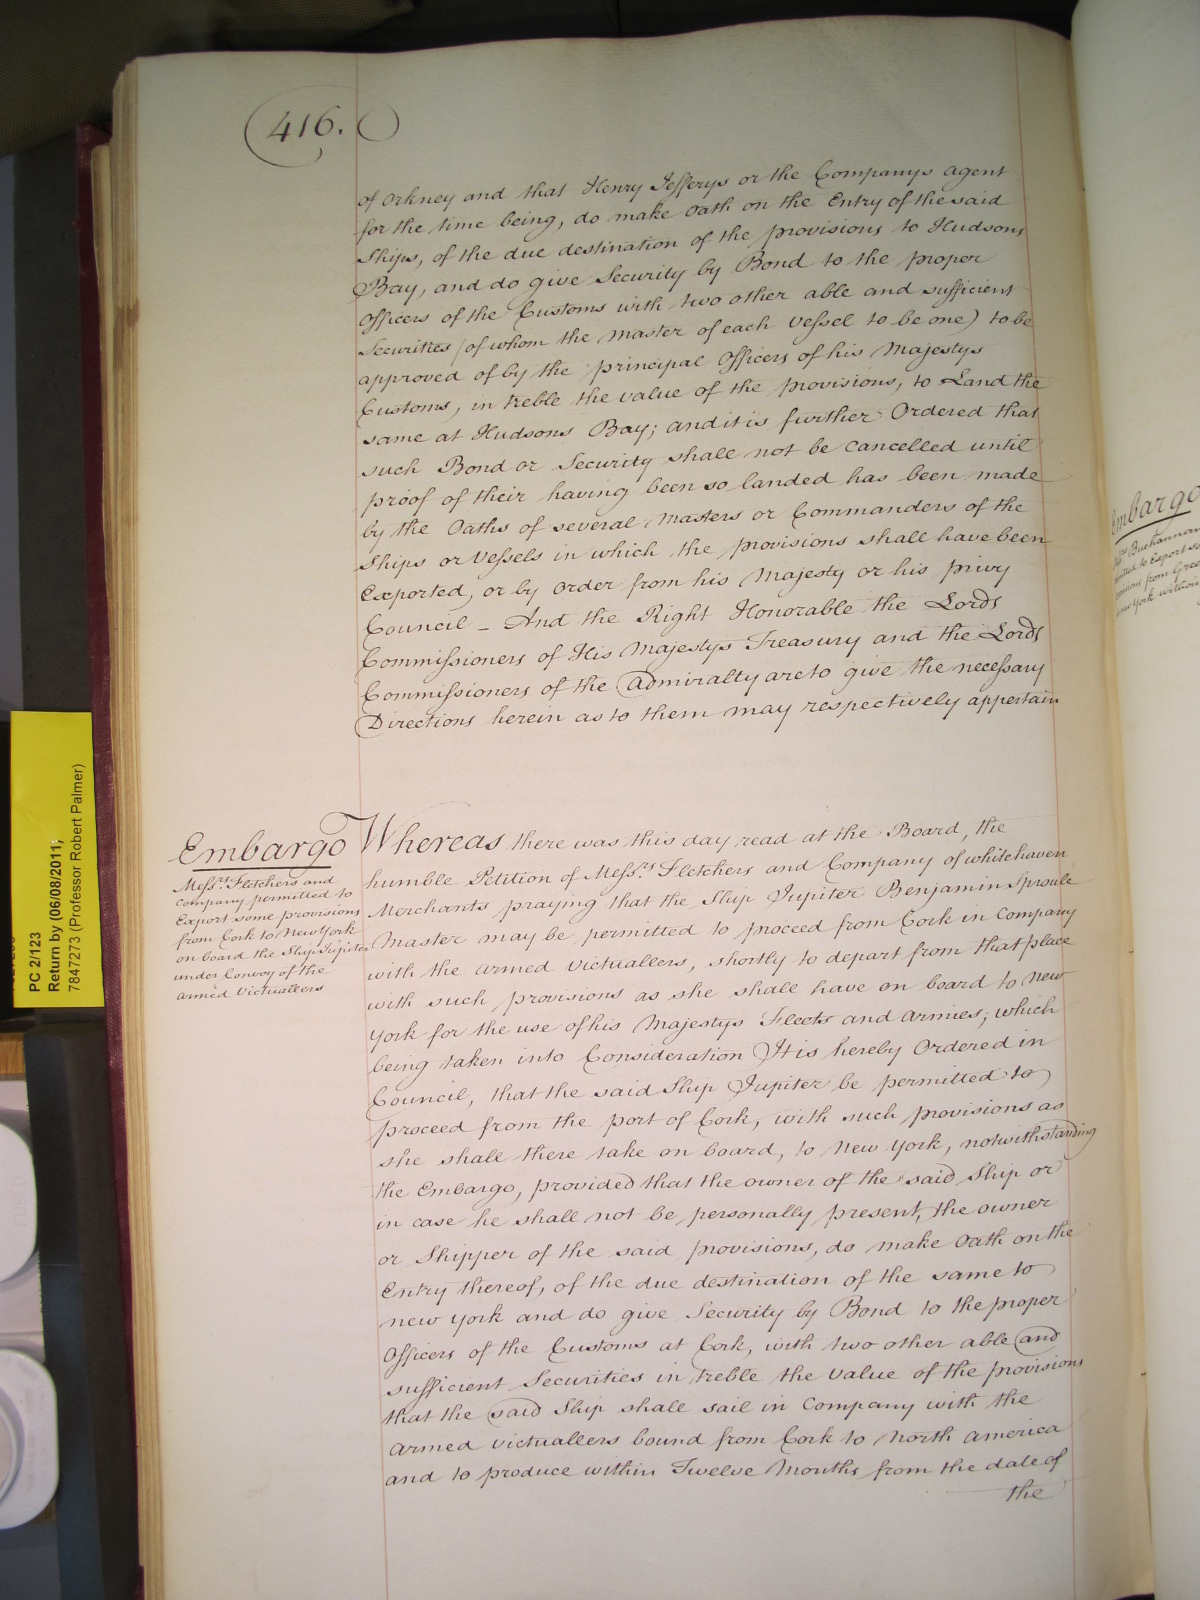 416.
of Orkney and that Henry Jefferys or the Companys agent
for the time being, do make Oath on the Entry of the said
Ships, of the due destination of the provisions to Hudsons
Bay, and do give Security by Bond to the proper
Officers of the Customs with two other able and sufficient
Securities (of whom the Master of each Vessel to be one) to be
approved of by the principal Officers of his Majestys
Customs, in treble the value of the provisions, to Land the
same at Hudsons Bay; and it is further Ordered that
such Bond or Security shall not be cancelled until
proof of their having been so landed has been made
by the Oaths of several Masters or Commanders of the
Ships or Vessels in which the provisions shall have been
Exported, or by Order from his Majesty or his privy
Council – And the Right Honorable the Lords
Commissioners of His Majestys Treasury and the Lords
Commissioners of the Admiralty are to give the necessary
Directions herein as to them may respectively appertain
Embargo
Messrs. Fletchers and
Company permitted to
Export some provisions
from Cork to New York
on board the Ship Jupiter
under Convoy of the
armed Victuallers
Whereas there was this day read at the Board, the
humble Petition of Messrs. Fletchers and Company of whitehaven
Merchants praying that the Ship Jupiter Benjamin Sproule
Master may be permitted to proceed from Cork in Company
with the armed Victuallers, shortly to depart from that place
with such provisions as she shall have on board to New
York for the use of his Majestys Fleets and Armies; which
being taken into Consideration It is hereby Ordered in
Council, that the said Ship Jupiter be permitted to
proceed from the port of Cork, with such provisions as
she shall there take on board, to New York, notwithstanding
the Embargo, provided that the owner of the said Ship or
in case he shall not be personally present, the owner
or Shipper of the said provisions, do make Oath on the
Entry thereof, of the due destination of the same to
new York and do give Security by Bond to the proper
Officers of the Customs at Cork, with two other able and
sufficient Securities in treble the value of the provisions
that the said Ship shall sail in Company with the
Armed Victuallers bound from Cork to North America
and to produce within Twelve Months from the date of
the
PC 2/123
Return by (06/08/2011;
7847273 (Professor Robert Palmer)
Embargo
Buchannan